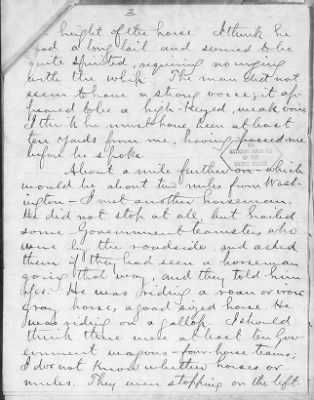 2
height of the horse. I think he
had a long tail and seemed to be
quite spirited, requiring no urging
with the whip. The man did not
seem to have a strong voice; it ap-
peared to be a high-keyed, weak voice
I think he must have been at least
ten yards from me, having passed me
before he spoke.
NATIONAL ARCHIVES
OF THE
UNITED STATES
About a mile further on - which
would be about two miles from Wash-
ington - I met another horseman.
He did not stop at all, but hailed
some Government teamsters who
were by the roadside and asked
them if they had seen a horseman
going that way, and they told him
yes. He was riding a roan or iron
gray horse, a good sized horse. He
was riding on a gallop. I should
think there were at least ten Gov-
ernment wagons - four-horse teams;
I do not know whether horses or
mules. They were stopping on the left